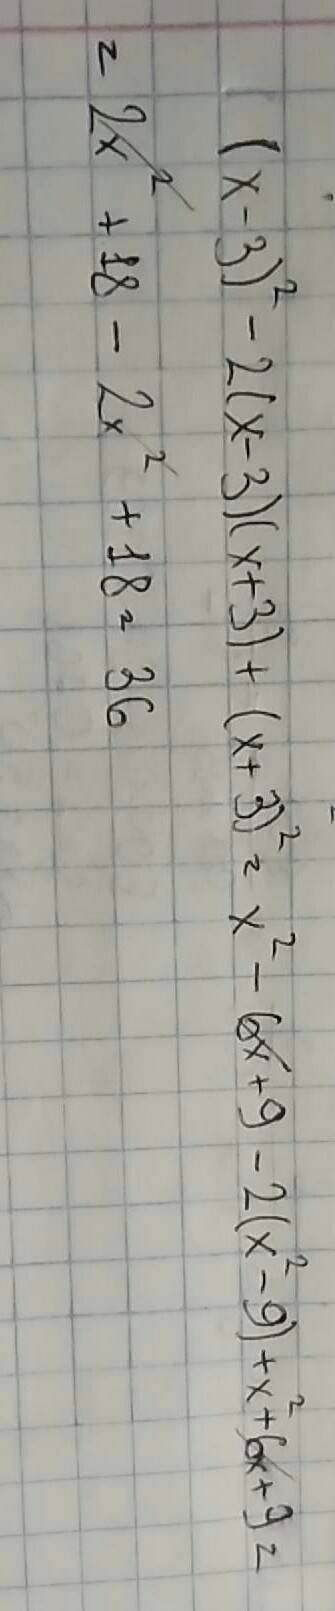 (x-3)² - 2(x-3)(x+3) + (x+3)² = x² - 6x + 9 - 2(x² - 9) + x² + 6x + 9 =
= 2x² + 18 - 2x² + 18 = 36